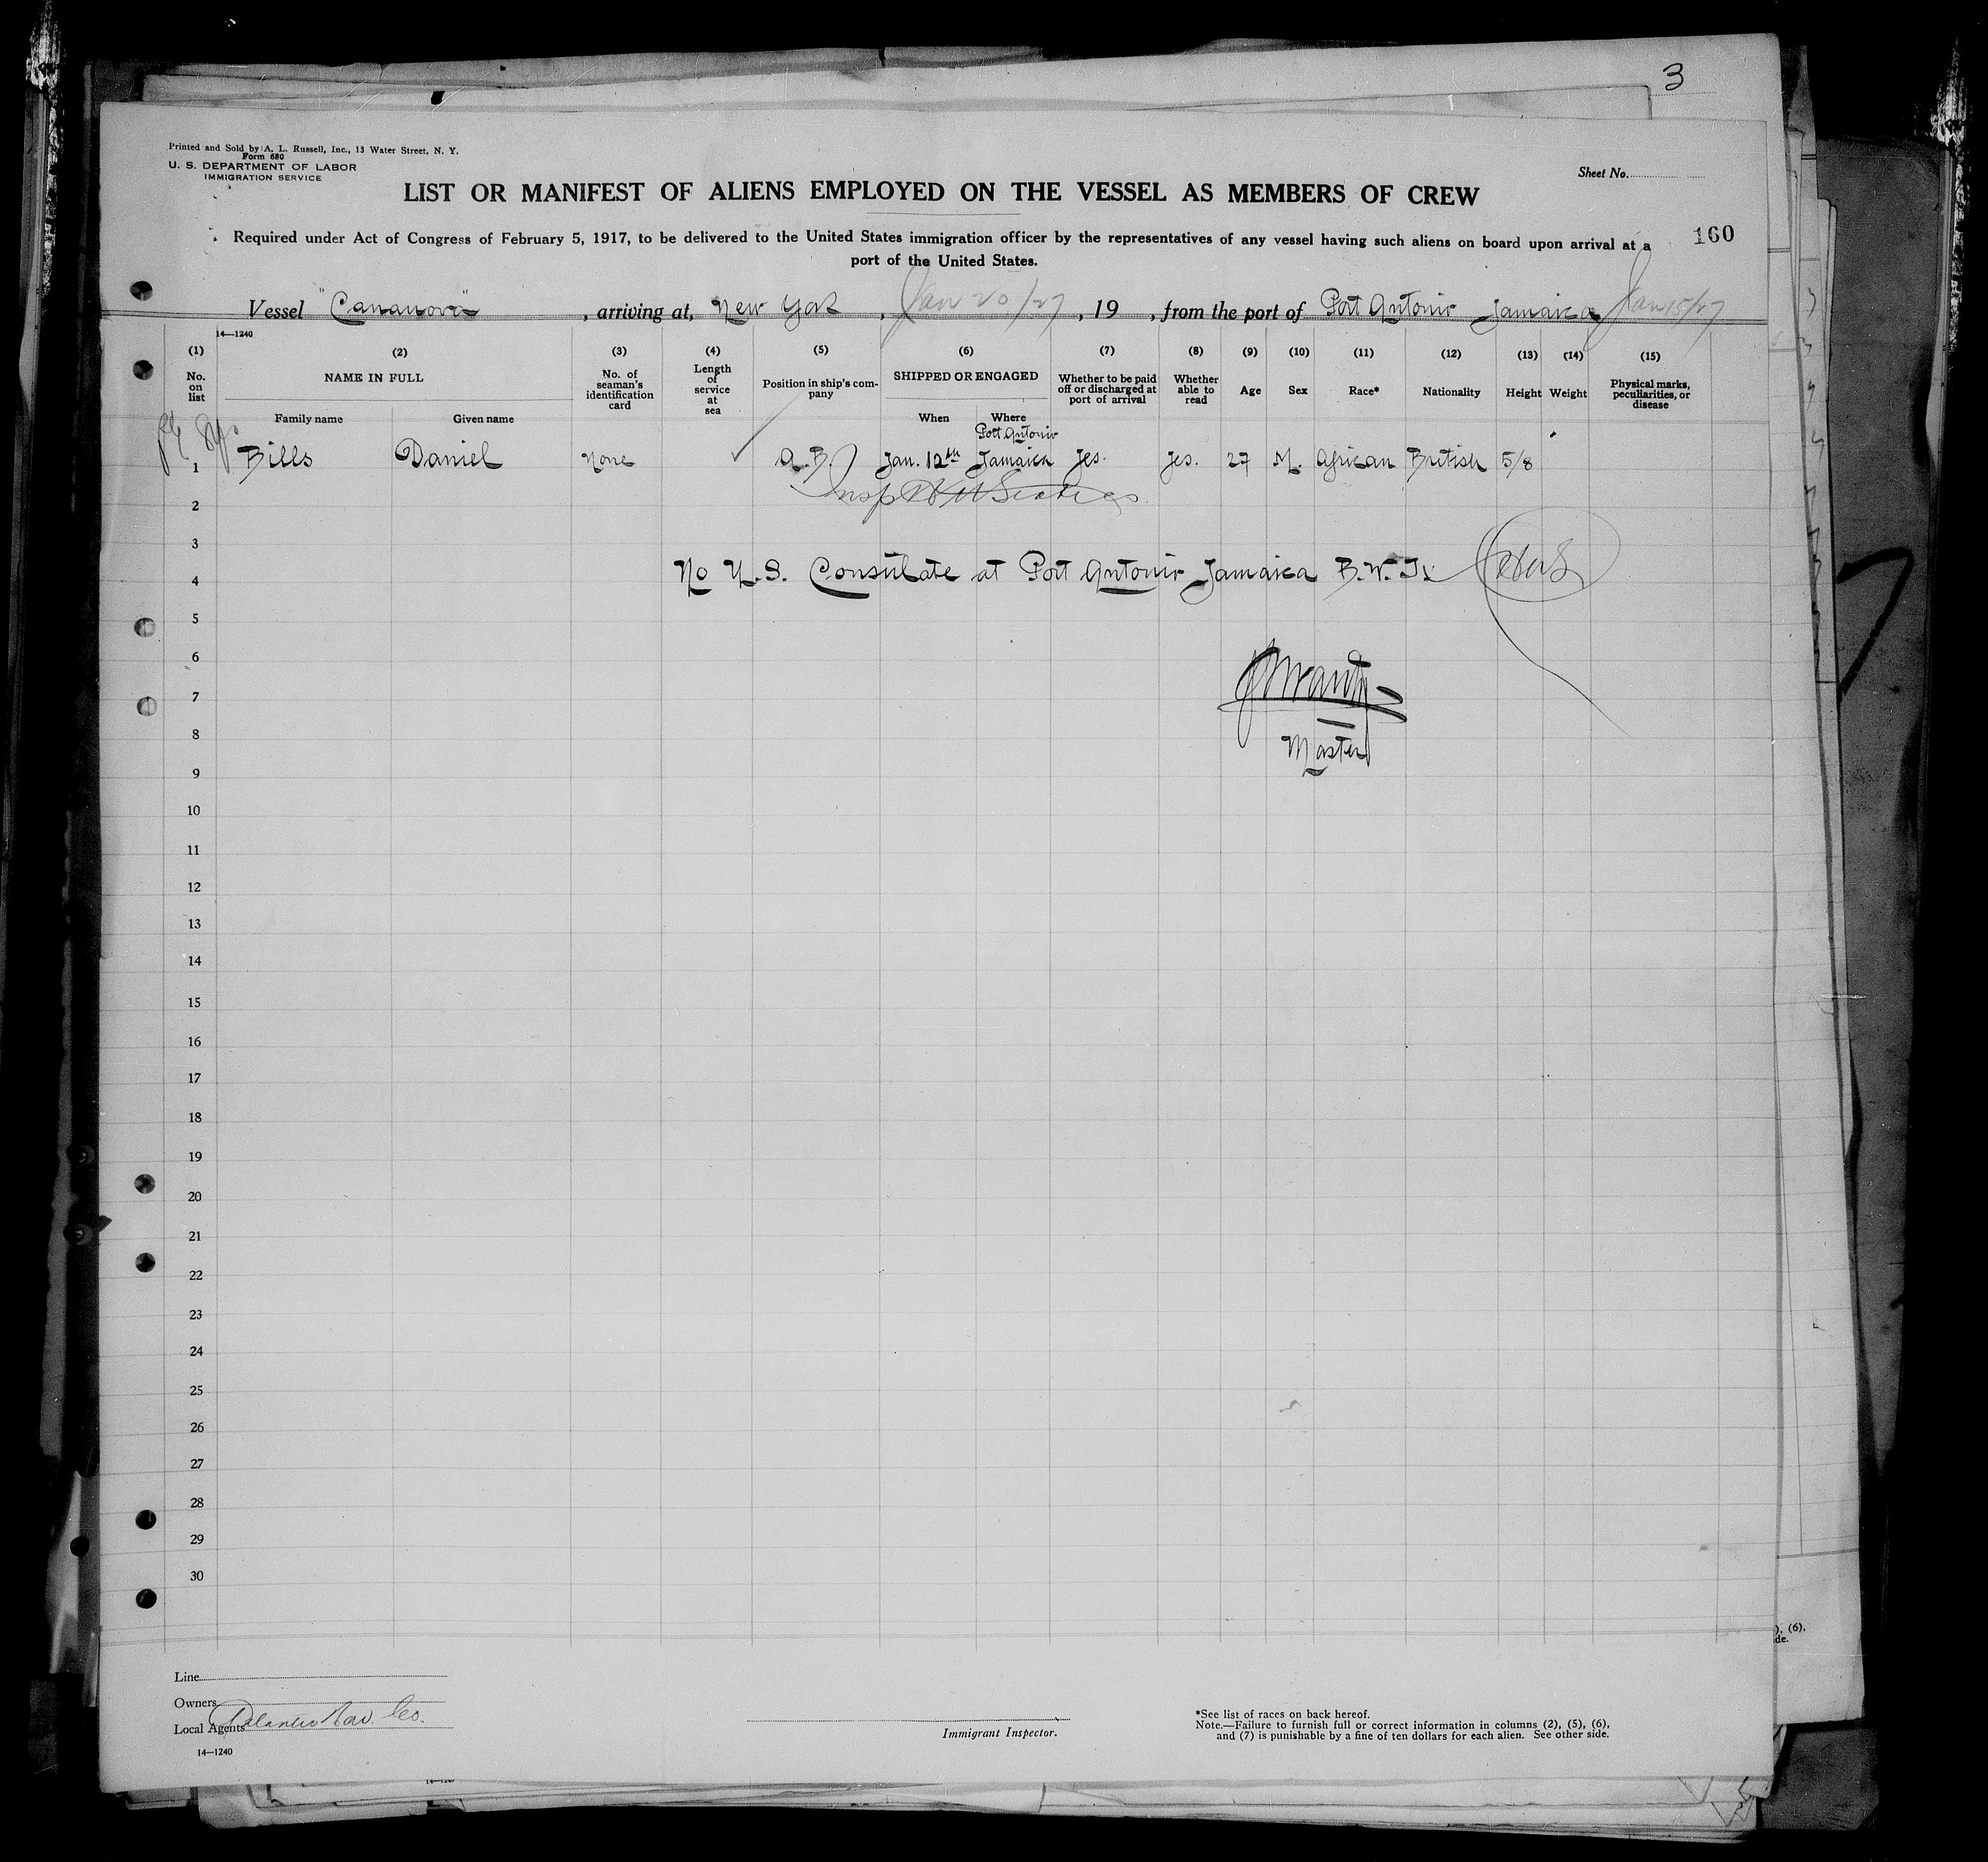 3
Printed and Sold by A. L. Russell, Inc., 13 Water Street, N. Y.
Form 680
U. S. DEPARTMENT OF LABOR
IMMIGRATION SERVICE
Sheet No.
LIST OR MANIFEST OF ALIENS EMPLOYED ON THE VESSEL AS MEMBERS OF CREW
Required under Act of Congress of February 5, 1917, to be delivered to the United States immigration officer by the representatives of any vessel having such aliens on board upon arrival at a
port of the United States.
160
Vessel "Cananova" , arriving at, New York , Jan 20/27 , 19 , from the port of Port Antonio Jamaica Jan 15/27
14—1240
(1) No. on list
(2) NAME IN FULL Family name Given name
(3) No. of seaman's identification card
(4) Length of service at sea
(5) Position in ship's company
(6) SHIPPED OR ENGAGED When Where
(7) Whether to be paid off or discharged at port of arrival
(8) Whether able to read
(9) Age
(10) Sex
(11) Race*
(12) Nationality
(13) Height
(14) Weight
(15) Physical marks, peculiarities, or disease
Port Antonio
1 Bills Daniel None A.B. Jan. 12th Jamaica Yes. Yes. 27 M. African British 5/8
Insp
2
3
No U.S. Consulate at Port Antonio Jamaica B.W.I.
4
5
6
7
8
Master
9
10
11
12
13
14
15
16
17
18
19
20
21
22
23
24
25
26
27
28
29
30
Line
Owners
Local Agents Atlantic Nav. Co.
14—1240
Immigrant Inspector.
*See list of races on back hereof.
Note.—Failure to furnish full or correct information in columns (2), (5), (6),
and (7) is punishable by a fine of ten dollars for each alien. See other side.
), (6),
de.